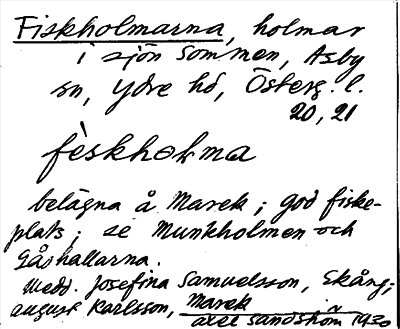 Fiskholmarna, holmar
i sjön Sommen, Asby
sn, Ydre hd, Österg. l.
20, 21
fèskhoḷma
belägna å Marek; god fiske-
plats; se Munkholmen och
Gåshallarna.
Medd. Josefina Samuelsson, Skång;
August Karlsson, Marek
Axel Sandsho 1930